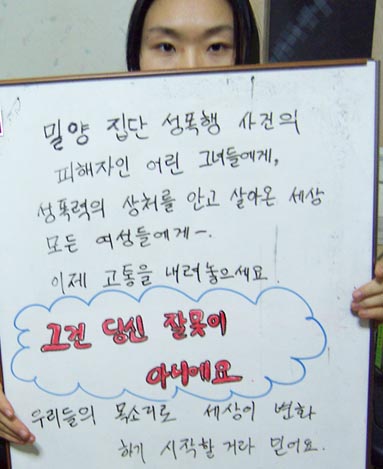 밀양 집단 성폭행 사건의
피해자인 어린 그녀들에게,
성폭력의 상처를 안고 살아온 세상
모든 여성들에게~.
이제 고통을 내려놓으세요
그건 당신 잘못이
아니에요
우리들의 목소리로 세상이 변화
하기 시작할 거라 믿어요.